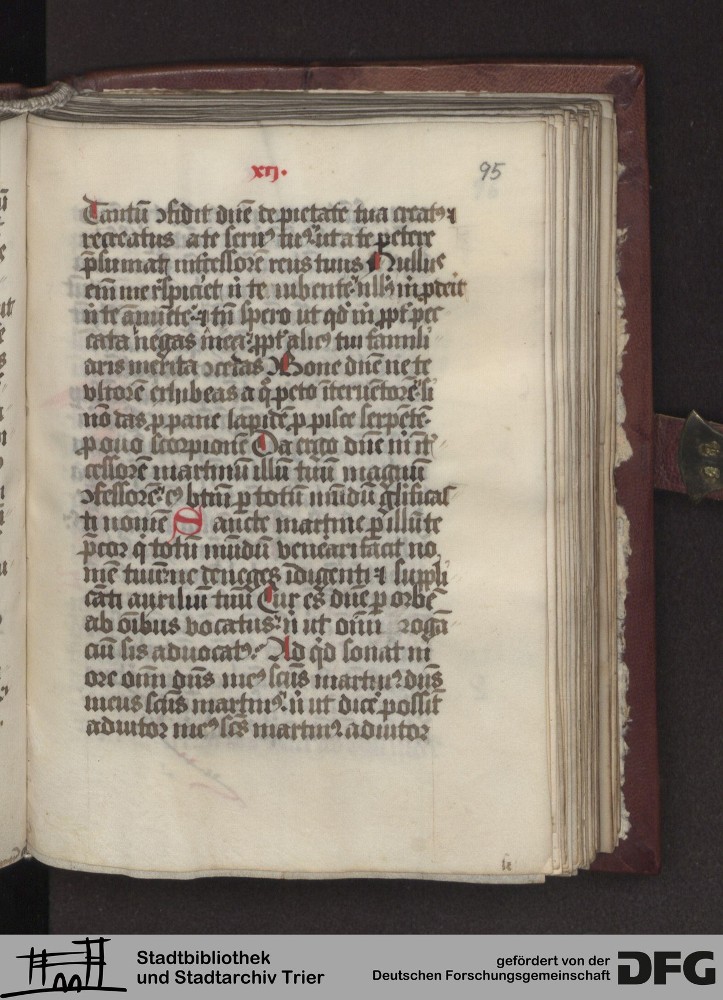 xij.
95
Tantū ɔfidit dn̄e de pietate tua creatꝰ ⁊
recreatus a te seruꝰ tuꝰ ut a te petere
p̄sumat int̄cessorē reus tuus Nullus
em̄ me rˢpiciet n̄ te iubente
n̄ te ānuēte ⁊ tn̄ spero ut qd̄ m̄ ꝓpt̓ pec
cata negas mea ꝓpt̓ aliꝰ tui famili
aris merita ɔcedas Bone dn̄e ne te
vltorē exhibeas a q̊ peto īteruētorē si
nō das ꝓ pane lapidē ꝓ pisce serpētē
ꝓ ouo scorpionē Da ergo dn̄e m̄ int̄
cessorē martinū illū tuū magnū
ɔfessorē btm̄ ꝑ totū mūdū gl̓ificas
ti nomē Sancte martine ꝑ illū te
p̄cor q̇ totū mūdū venerari facit no
mē tuū ne deneges īdigenti ⁊ suppli
cāti auxiliū tuū Cur es dn̄e ꝑ orbē
ab oībus vocatus n̄ ut oīm rogā
ciū sis aduocatꝰ Ad qd̄ sonat in
ore oīm dn̄s meꝰ scūs martinꝰ dn̄s
meus scūs martinꝰ n̄ ut dice̓ possit
adiutor meꝰ scs martinꝰ adiutor
Stadtbibliothek
und Stadtarchiv Trier
gefördert von der
Deutschen Forschungsgemeinschaft
DFG